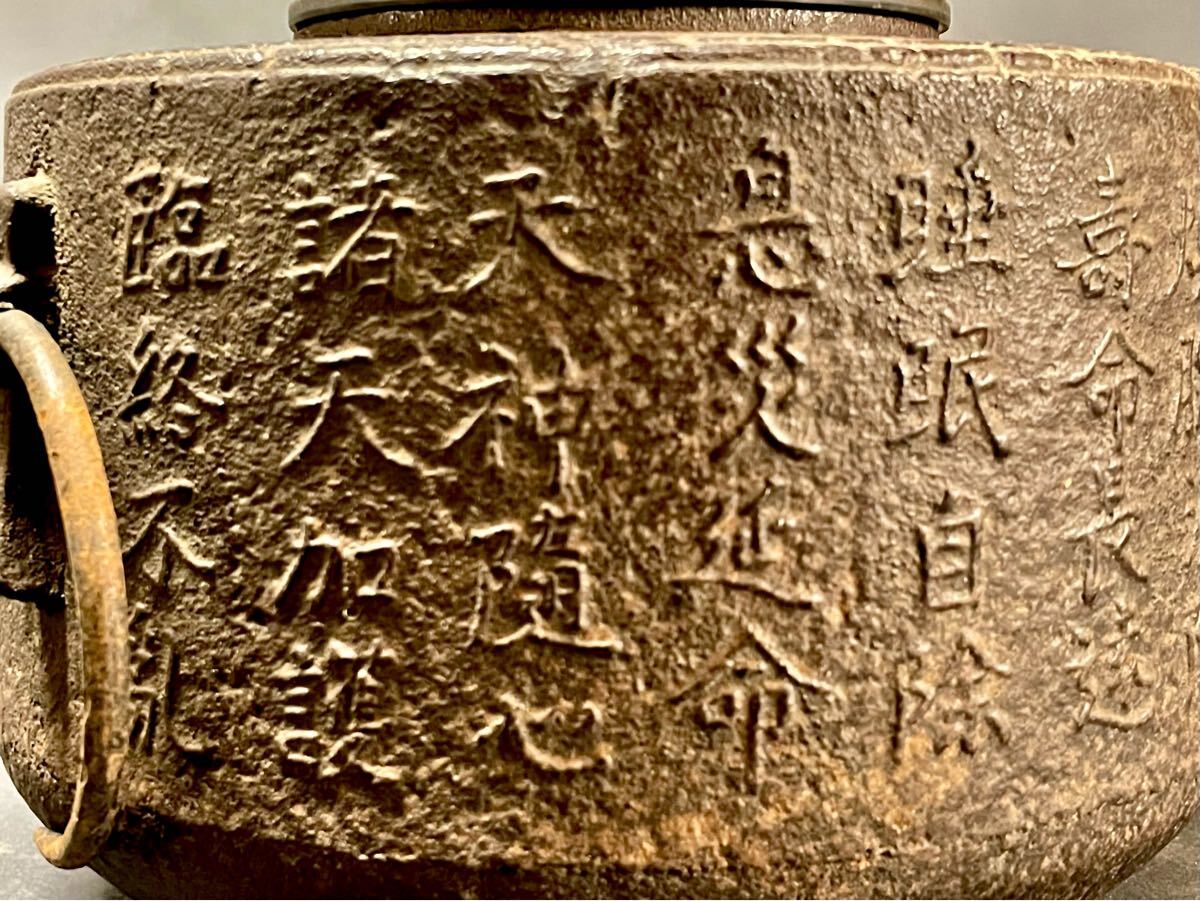 壽命長遠
睡眠自除
息災延命
天神隨心
諸天加護
臨終不亂